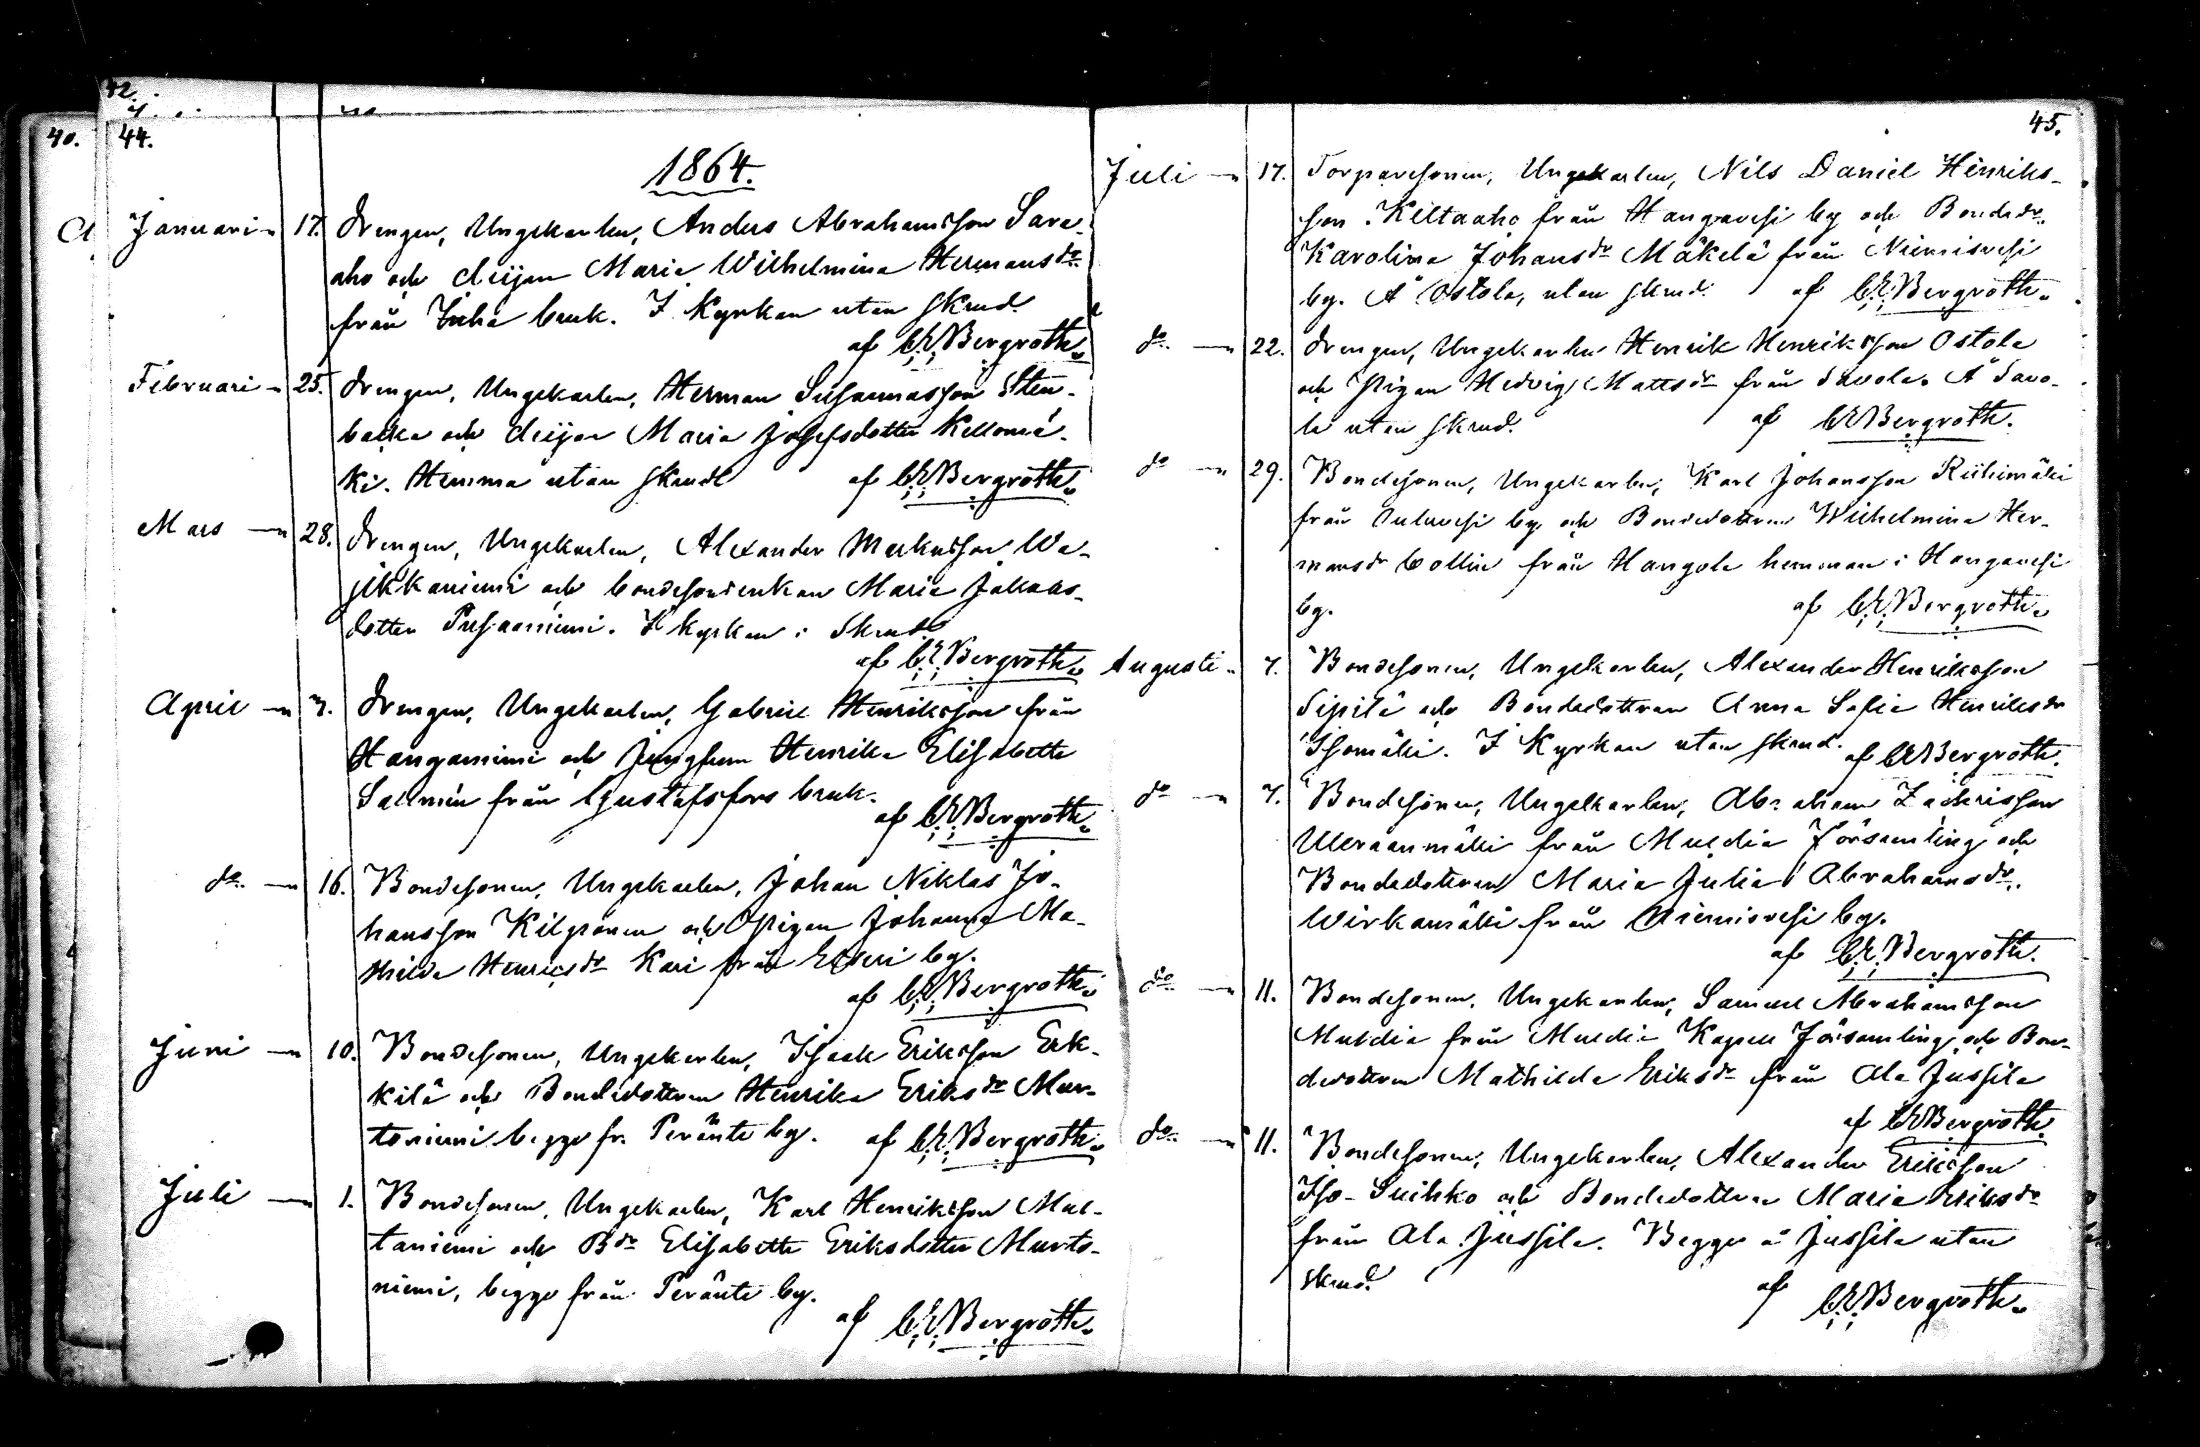 42.
40.
44.
1864.
Januari 17. Drengen, Ungekarlen, Anders Abrahamsson Sara-
aho och Maria Wilhelmina Hermansdr
från Inha bruk. I Kyrkan utan skrud.
af C.E. Bergroth.
Februari 25. Drengen, Ungekarlen, Herman Susannasson Sten-
backa och Maria Josefsdotter Kellomä-
ki. Hemma utan skrud af C.E. Bergroth.
Mars 28. Drengen, Ungekarlen, Alexander Markusson We-
jikkaniemi och bondesonenkan Maria Jakobs-
dotter Pusaaniemi. I Kyrkan i Skrud
af C.E. Bergroth.
April 7. Drengen, Ungekarlen, Gabriel Henriksson från
Hanganiemi och Jungfrun Henrika Elisabeth
Salmén från Gustafsfors bruk.
af C.E. Bergroth.
do 16. Bondesonen, Ungekarlen, Johan Niklas Jo-
hansson Kilpönen och Pigan Johanna Ma-
thilda Henricsdr Kari från Etseri by.
af C.E. Bergroth.
Juni 10. Bondesonen, Ungekarlen, Isaak Eriksson Erk-
kilä och Bondedottren Henrika Eriksdr Mur-
toniemi begge fr. Peränte by. af C.E. Bergroth.
Juli 1. Bondesonen, Ungekarlen, Karl Henriksson Mul-
taniemi och Bdr Elisabeth Eriksdotter Murto-
niemi, begge från Peränte by.
af C.E. Bergroth.
45.
Juli 17. Torparesonen, Ungekarlen, Nils Daniel Hinriks-
son Kiltaaho från Hangavesi by och Bondedr
Karolina Johansdr Mäkelä från Niemisvesi
by. Å Ostola, utan skrud. af C.E. Bergroth.
do 22. Drengen, Ungekarlen Henrik Henriksson Ostola
och Pigan Hedvig Mattsdr från Savola. Å Savo-
la utan skrud. af C.E. Bergroth.
do 29. Bondesonen, Ungekarlen, Karl Johansson Riihimäki
från by och Bondedottren Wilhelmina Her-
mansdr Collin från Hangola hemman i Hangavesi
by. af C.E. Bergroth.
Augusti 7. Bondesonen, Ungekarlen, Alexander Henriksson
Sipilä och Bondedottren Anna Sofia Henriksdr
Isomäki. I Kyrkan utan skrud. af C.E. Bergroth.
do 7. Bondesonen, Ungekarlen, Abraham Zackrisson
från Multia Församling och
Bondedottren Maria Julia Abrahamsdr
Wirkamäki från Niemisvesi by.
af C.E. Bergroth.
do 11. Bondesonen, Ungekarlen, Samuel Abrahamsson
Multia från Multia Kapell Församling och Bon-
dedottren Mathilda Eriksdr från Ala Jussila
af C.E. Bergroth.
do 11. Bondesonen, Ungekarlen, Alexander Eriksson
Iso-Suihko och Bondedottren Maria Eriksdr
från Ala Jussila. Begge å Jussila utan
skrud. af C.E. Bergroth.